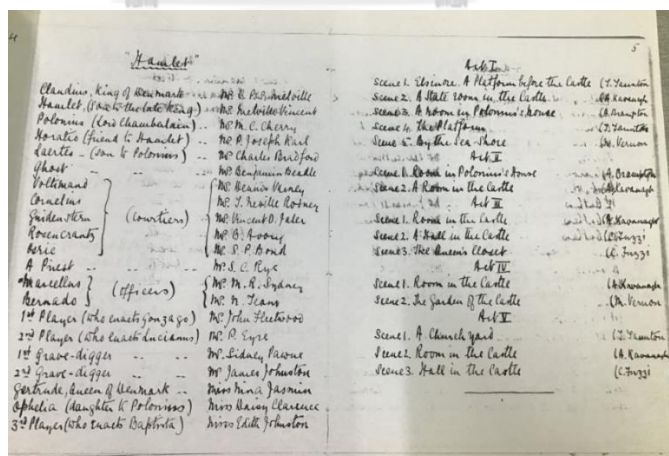 4
"Hamlet"
Claudius, King of Denmark Mr. Melville
Hamlet, (Son to the late King) Mr. Melville Vincent
Polonius (Lord Chamberlain) .. Mr. M. C. Cherry
Horatio (friend to Hamlet) .. Mr. P. Joseph Karl
Laertes - (Son to Polonius) .. Mr. Charles Bradford
Ghost .. .. Mr. Benjamin Beadle
Voltimand Mr. Dennis Verney
Cornelius Mr. J. Neville Rodney
Guidenstern (Courtiers) Mr. Vincent D. Jaler
Rosencrantz Mr. B. Avory
Osric Mr. S. P. Bond
A Priest .. .. .. Mr. S. C. Rye
Marcellus (Officers) Mr. M. R. Sydney
Bernado Mr. N. Jeans
1st Player (who enacts Gonzago) Mr. John Fleetwood
2nd Player (who enacts Lucianus) Mr. P. Eyre
1st Grave-digger .. .. Mr. Sidney Pawne
2nd Grave-digger .. .. Mr. James Johnston
Gertrude, Queen of Denmark .. Miss Nina Jasmin
Ophelia (daughter to Polonius) Miss Daisy Clarence
3rd Player (who enacts Baptista) Miss Edith Johnston
5
Act I
Scene 1. Elsinore. A Platform before the Castle (T. Taunton
Scene 2. A State room in the Castle (A. Kavanagh
Scene 3. A Room in Polonius's house (A. Brampton
Scene 4. The Platform (T. Taunton
Scene 5. By the Sea-Shore (M. Vernon
Act II
Scene 1. Room in Polonius's House (A. Brampton
Scene 2. A Room in the Castle (A. Kavanagh
Act III
Scene 1. Room in the Castle (A. Kavanagh
Scene 2. A Hall in the Castle (C. Fuzzi
Scene 3. The Queen's Closet (C. Fuzzi
Act IV
Scene 1. Room in the Castle (A. Kavanagh
Scene 2. The Garden of the Castle (M. Vernon
Act V
Scene 1. A Church Yard (T. Taunton
Scene 2. Room in the Castle (A. Kavanagh
Scene 3. Hall in the Castle (C. Fuzzi